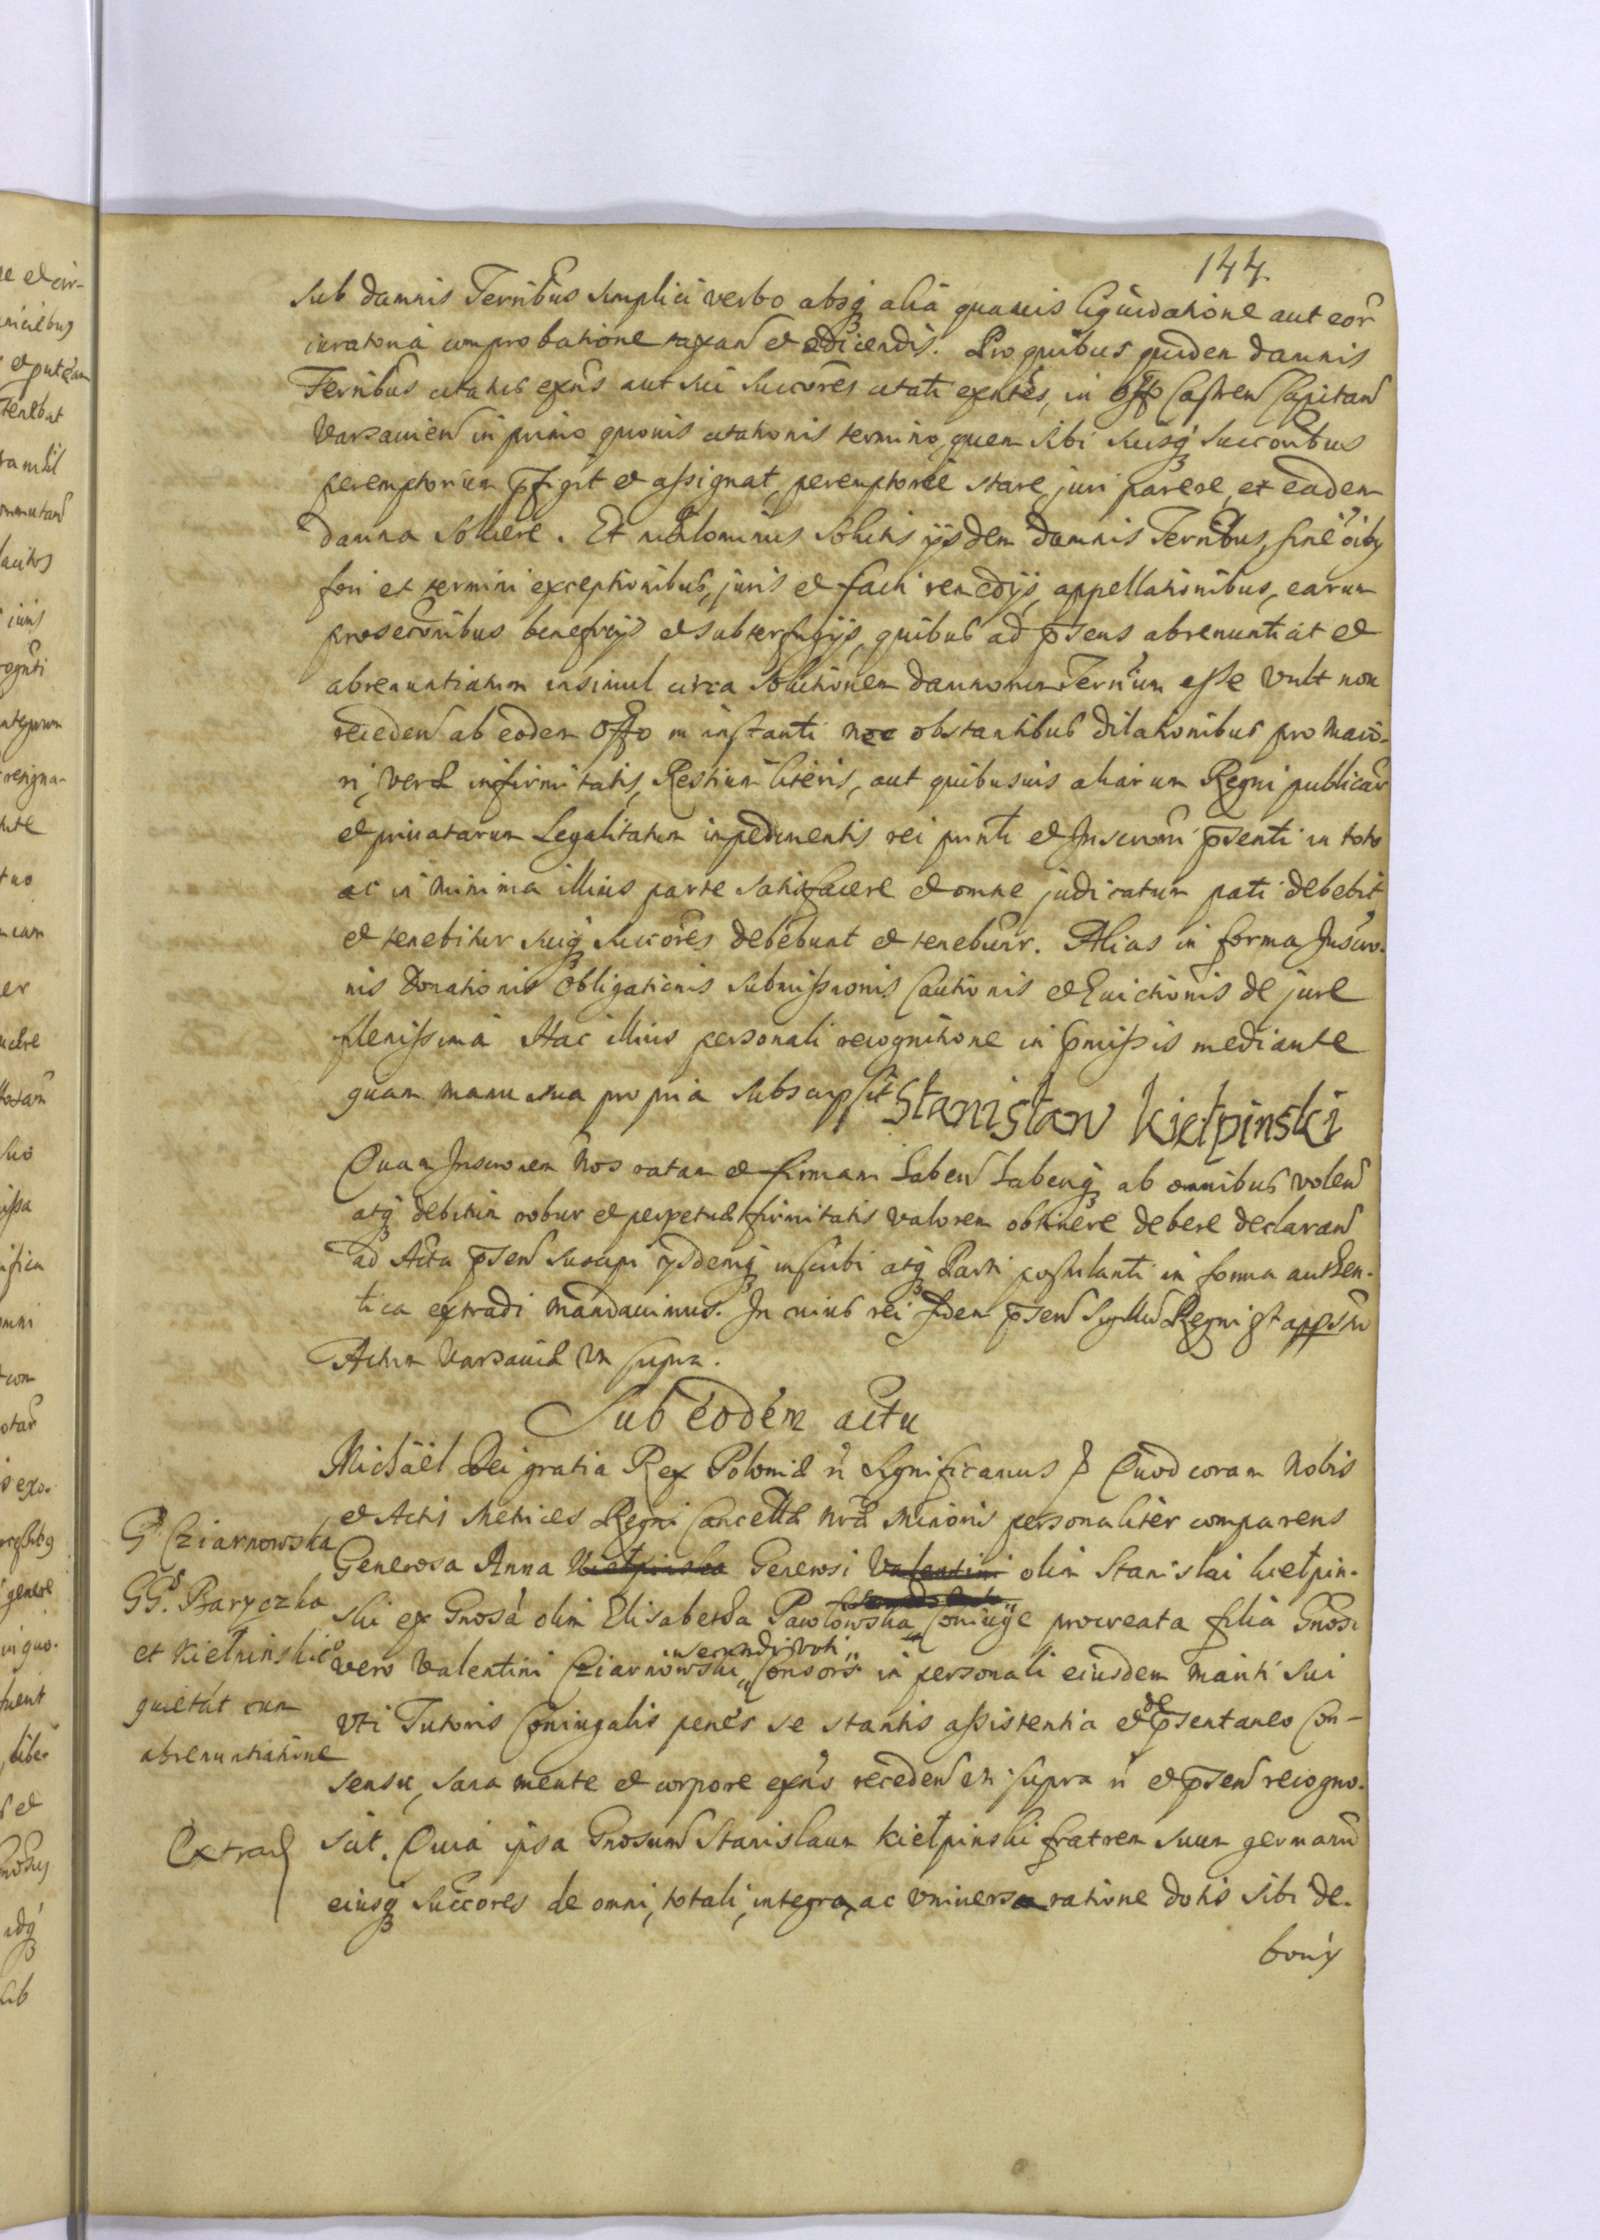 144.
sub damnis Terribus simplici verbo absq alia quamis liquidatione aut cor
iuratoria comprobatione taxan et edicendis. Pro quibus quidem damnis
Terribus citatus exns aut sui succores citati exntes, in offo Castren Capitan
Varsavien in primo quovis citationis termino, quem sibi suisq succoribus
peremptorium pfigit et assignat, peremptorie stare, juri parere, et eadem
damna solvere. Et nihilominus solutis ijsdem damnis Terribus, sine oibq
fori et termini exceptionibus, juris et facti remedijs, appellationibus, earum
prosecōnibus beneficijs et subterfugijs, quibus ad psens abrenuntiat et
abrenuntiatum insimul circa solutionem damnorum Terrium esse vult non
receden ab eodem offo in instanti non obstantibus dilationibus pro maio-
ri, vera infirmitatis, Restium literis, aut quibusvis aliarum Regni publicar
et privatarum Legalitatum impedimentis rei pnti et Inscrōni psenti in toto
ac in minima illius parte satisfacere et omne judicatum pati debebit
et tenebitur suiq succores debebunt et tenebunr. Alias in forma Inscro-
nis Donationis Obligationis submissionis Cautionis et Evictionis de jure
plenissima Hac illius personali recognitione in pmissis mediante
quam manu sua propria subscripsit Stanisław Kiełpinski
Quam Inscronem Nos ratam et firmam haben haberiq ab omnibus volen
atq debitum robur et perpetuae firmitatis valorem obtinere debere declaran
ad Acta psen suscipi ijsdemq inscribi atq Parti postulanti in forma authen-
tica extradi mandavimus. In cuius rei fidem psen Sigillu Regni est appsu
Actum Varsaviae Ut supra.
Sub eodem actu
Michaël Dei gratia Rex Poloniae ñ Significamus p Quod coram Nobis
et Actis Metrices Regni Cancellae nrae Minoris personaliter comparens
Generosa Anna Kiełpinska Generosi Valentini olim Stanislai Kiełpin-
ski ex Gnosa olim Elisabetha Pawłowska Coniuge procreata filia Gnosi
vero Valentini Cziarnowski secundi voti Consors in personali eiusdem mariti sui
Uti Tutoris Coniugalis penes se stantis assistentia et de psentaneo Con-
sensu, sana mente et corpore exns receden ut supra ñ et psen recogno-
scit. Quia ipsa Gnosum Stanislaum Kiełpinski fratrem suum germanu
eiusq Succores de omni, totali, integra, ac universa ratione dotis sibi de-
bonis
G Cziarnowska
GG. Baryczka
et Kiełpinskie
quietat cum
abrenuntiatione
Extrad